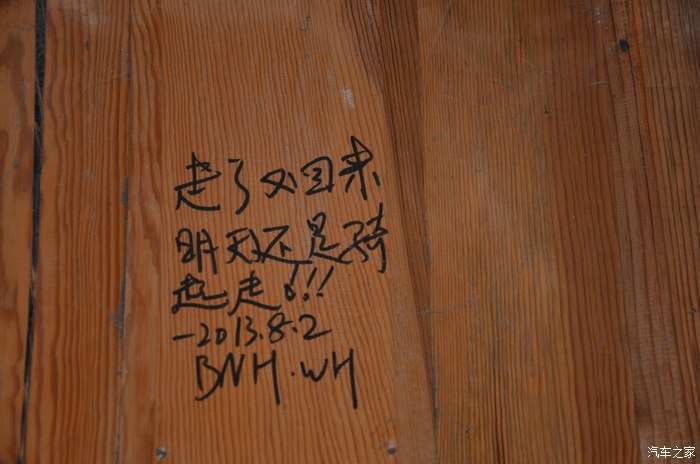 走了又回来
明天还是骑
起走!!!
-2013.8.2
BNH.WH
汽车之家